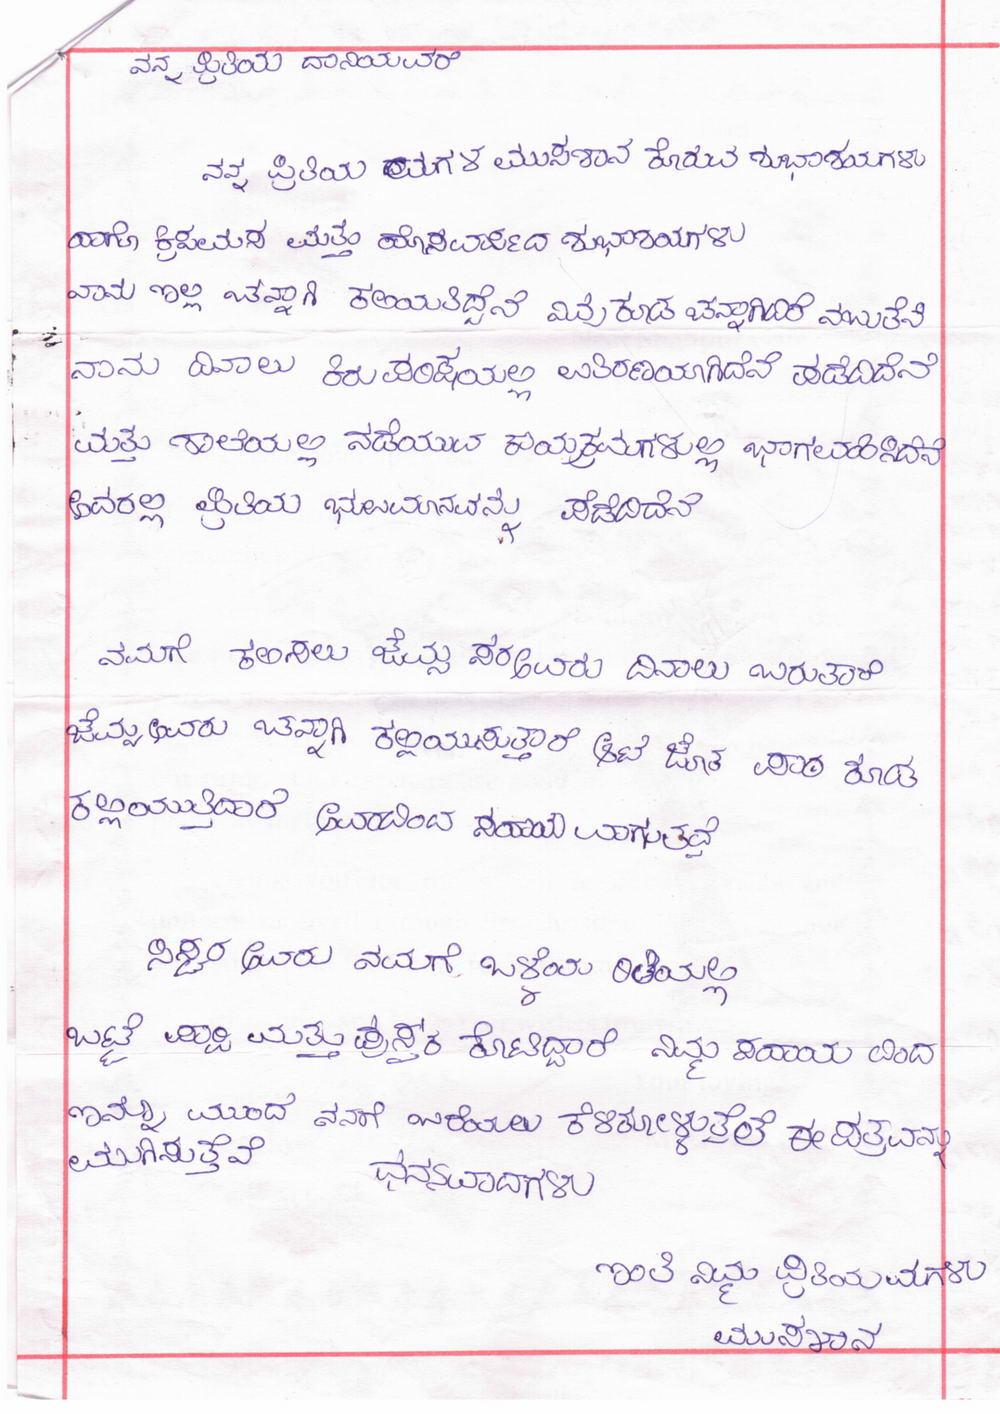 ನನ್ನ ಪ್ರಿತಿಯ ದಾನಿಯವರೆ
ನನ್ನ ಪ್ರಿತಿಯ ಮಗಳ ಮುಸಕಾನ ಕೊರುವ ಶುಭಾಶಯಗಳು
ಹಾಗೊ ಕ್ರಿಸಮಸ ಮತ್ತು ಹೊಸವರ್ಷದ ಶುಭಾಶಯಗಳು
ನಾನು ಇಲ್ಲಿ ಚನ್ನಾಗಿ ಕಲಿಯತಿದ್ದೆನೆ ನಿವು ಕೂಡ ಚನ್ನಾಗಿದಿರೆ ನಂಬುತೆನೆ
ನಾನು ದಿನಾಲು ಕಿರು ಪರಿಕ್ಷೆಯಲ್ಲಿ ಉತಿರಣಯಾಗಿದೆನೆ ಪಡೆದಿದೆನೆ
ಮತ್ತು ಶಾಲೆಯಲ್ಲಿ ನಡೆಯುವ ಕಾಯಕ್ರಮಗಳಲ್ಲಿ ಭಾಗವಹಿಸಿದೆನೆ
ಅದರಲ್ಲಿ ಪ್ರಿತಿಯ ಭಹುಮಾನವನ್ನು ಪಡೆದಿದೆನೆ
ನಮಗೆ ಕಲಿಸಲು ಜೆಮ್ಸ ಸರಅವರು ದಿನಾಲು ಬರುತಾರೆ
ಜೆಮ್ಸಅವರು ಚನ್ನಾಗಿ ಕಲ್ಲಿಯುಸುತ್ತಾರೆ ಆಟ ಜೊತ ಪಾಠ ಕೂಡ
ಕಲ್ಲಿಯುತ್ತಿದಾರೆ ಅವಾದಿಂದ ಸಹಾಯವಾಗುತ್ತದೆ
ಸಿಸ್ಟರ ಅವರು ನಮಗೆ ಒಳ್ಳೆಯ ರಿತಿಯಲ್ಲಿ
ಬಟ್ಟೆ ಪಾಟಿ ಮತ್ತು ಪುಸ್ತಕ ಕೊಟಿದ್ದಾರೆ ನಿಮ್ಮ ಸಹಾಯ ದಿಂದ
ಇನ್ನೂ ಮುಂದೆ ನನಗೆ ಬರೆಯಲು ಕೆಳಿಕೊಳ್ಳುತ್ತೆಂತೆ ಈ ಪತ್ರವನ್ನು
ಮುಗಿಸುತ್ತೆವೆ ಧನ್ಯವಾದಗಳು
ಇಂತಿ ನಿಮ್ಮ ಪ್ರಿತಿಯಮಗಳು
ಮುಸಕಾನ